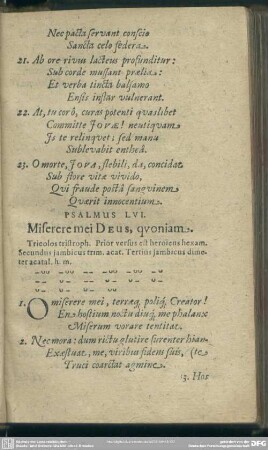 Nec pacta servant conscio
Sancta celo fœdera.
21. Ab ore rivus lacteus profunditur:
Sub corde mussant prælia:
Et verba tincta balsamo
Ensis instar vulnerant.
22. At, tu corô, curas potenti quaslibet
Committe JOVÆ! neutiquam
Is te relinquet; sed manu
Sublevabit entheâ.
23. O morte, JOVA, flebili, da, concidat
Sub flore vitæ vivido,
Qui fraude poscit sanguinem
Quærit innocentium.
PSALMUS LVI.
Miserere mei DEUS, qvoniam.
Tricolos tristroph. Prior versus est heroicus hexam.
Secundus jambicus trim. acat. Tertius jambicus dime-
ter acatal. h. m.
1. O miserere mei, terræq; poliq; Creator!
En hostium noctu diuq; me phalanx
Miserum vorare tentitat.
2. Nec mora: dum rictu glutire furenter hian-
Exæstuat, me, viribus fidens suis, (te
Truci coarctat agmine.
3. Hoc